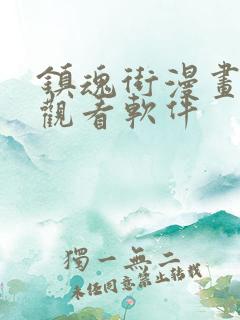 鎮魂街漫畫
觀看軟件
獨一無二
未經同意禁止轉載